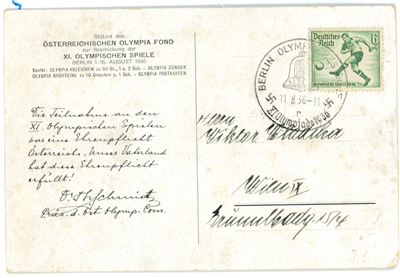 Stützet den
ÖSTERREICHISCHEN OLYMPIA FOND
zur Beschickung der
XI. OLYMPISCHEN SPIELE
BERLIN 1.-16. AUGUST 1936
Kaufet: OLYMPIA ABZEICHEN zu 50 Gr., 1 u. 2 Sch. · OLYMPIA ZÜNDER
OLYMPIA BAUSTEINE zu 50 Groschen u. 1 Sch. · OLYMPIA POSTKARTEN
Die Teilnahme an den
XI. Olympischen Spielen
war eine Ehrenpflicht
Österreichs. Unser Vaterland
hat diese Ehrenpflicht
erfüllt!
Dr. Schmidt
Präs. d. Öst. Olymp. Com.
Deutsches Reich 6
BERLIN OLYMP
11.8.36-11
XI. Olympiade 1936
Herrn
Viktor
Wien IX
15/4